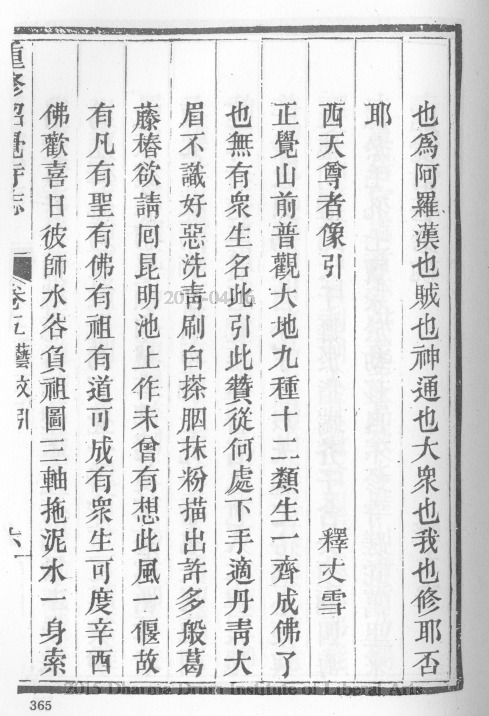 也爲阿羅漢也賊也神通也大衆也我也修耶否
耶
西天尊者像引 釋丈雪
正覺山前普觀大地九種十二類生一齊成佛了
也無有衆生名此引此贊從何處下手適丹靑大
眉不識好惡洗靑刷白搽胭抹粉描出許多般葛
藤椿欲請回昆明池上作未曾有想此風一偃故
有凡有聖有佛有祖有道可成有衆生可度辛酉
佛歡喜日彼師水谷負祖圖三軸拖泥水一身索
重修昭覺寺志 卷五藝文引
365
2015 Dharma Drum Institute of Liberal Arts